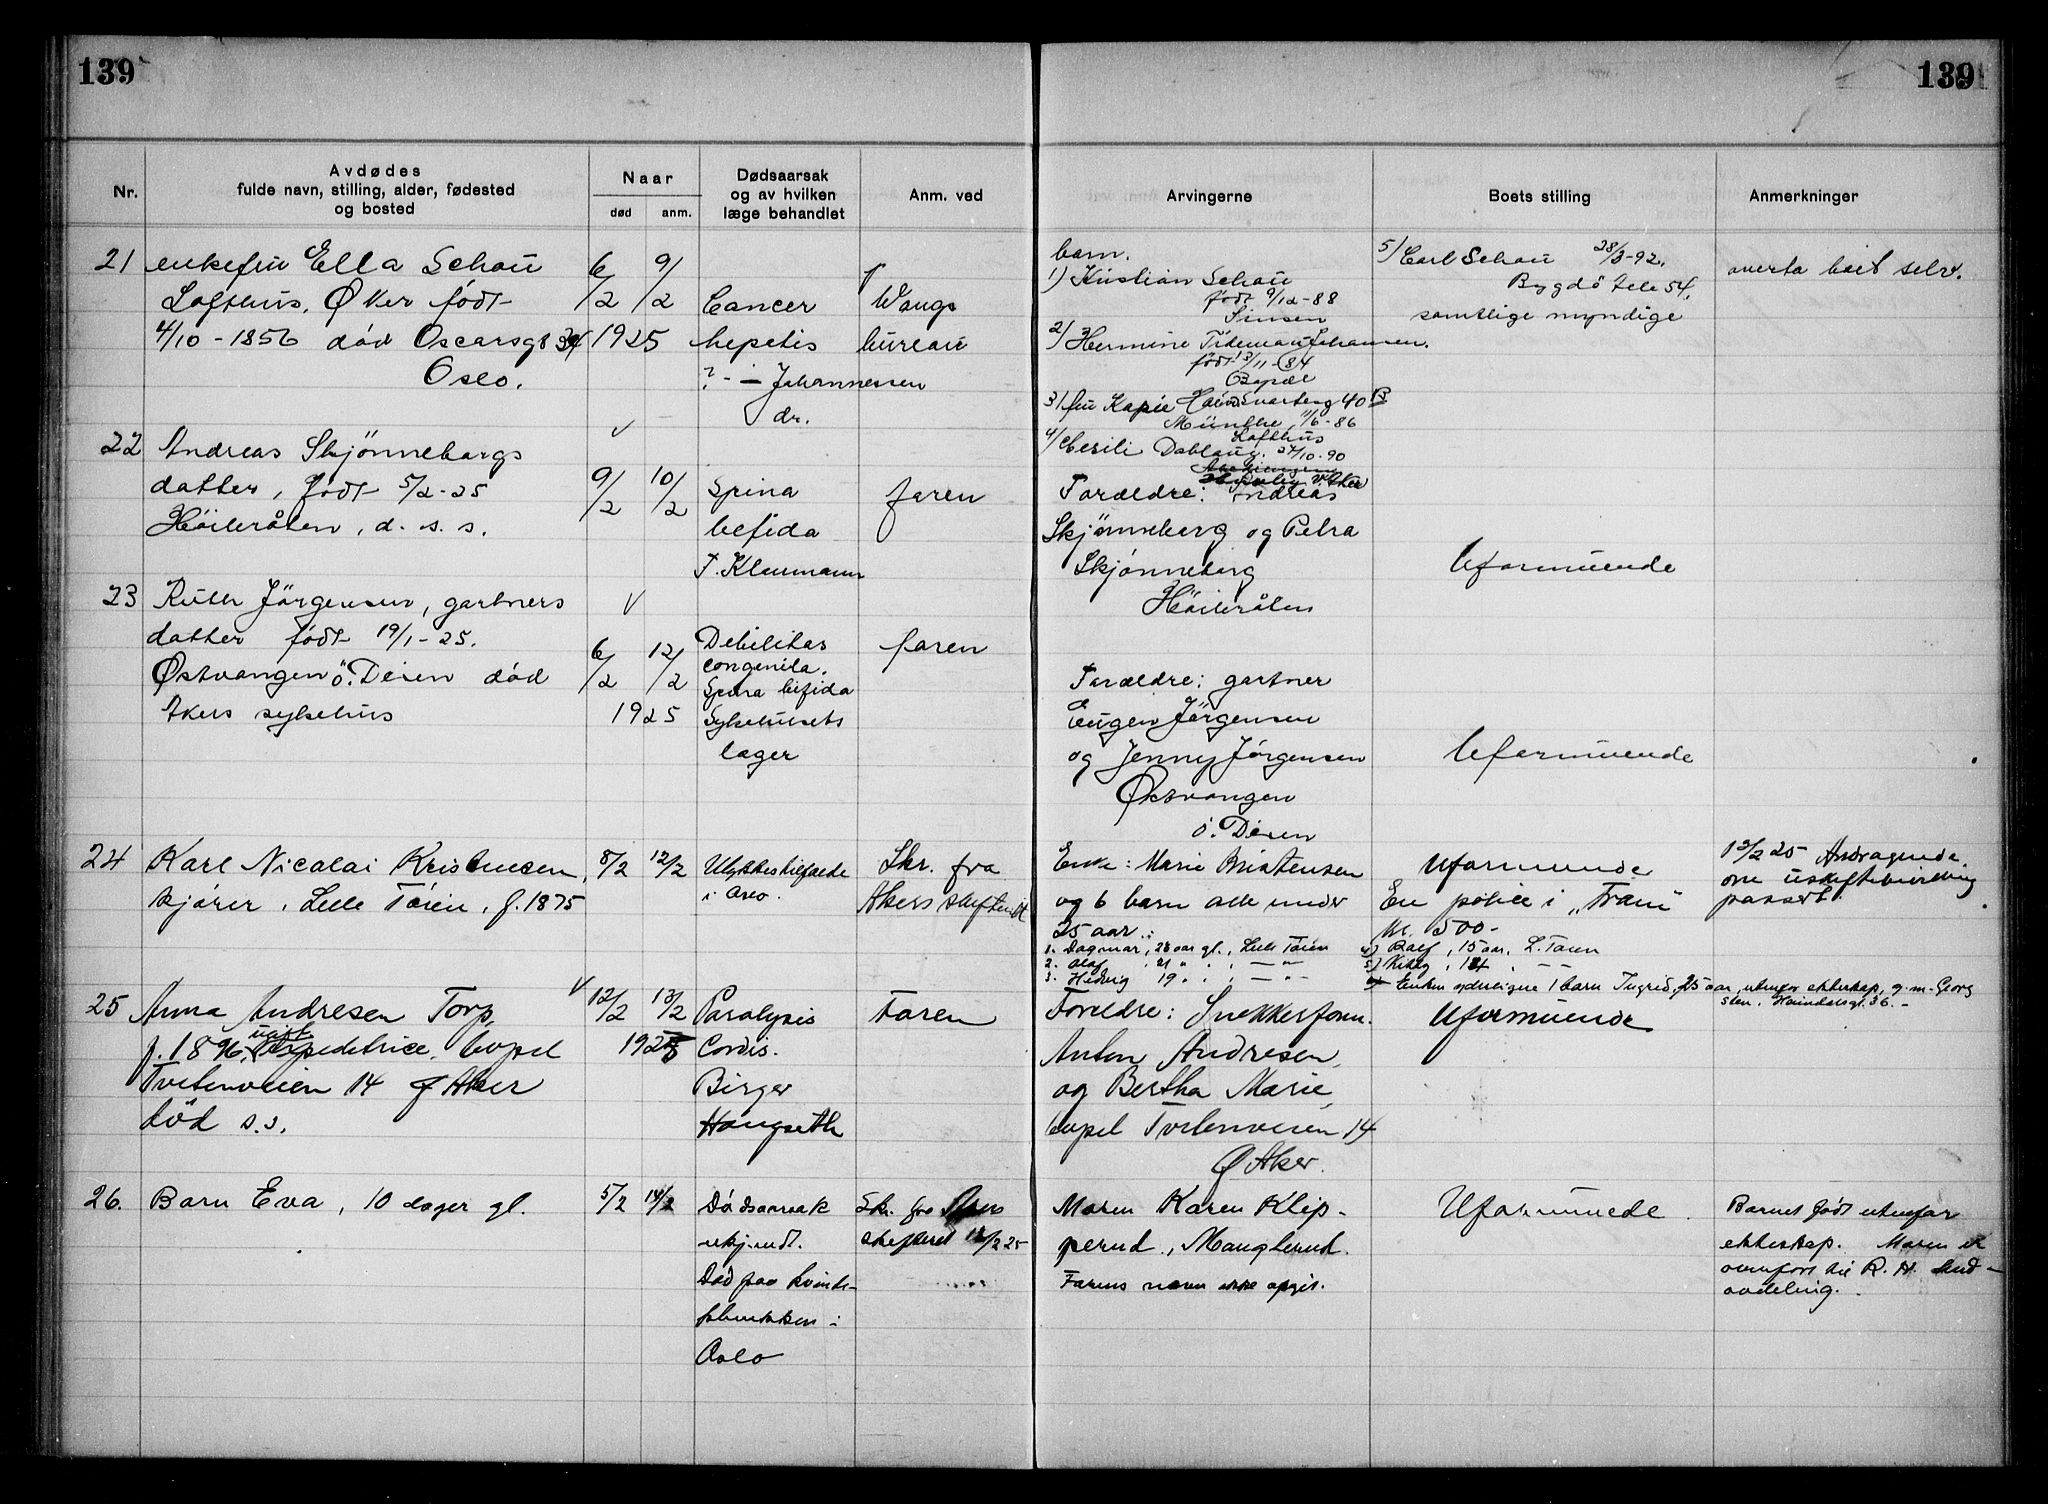 139
139
Nr.
Avdødes
fulde navn, stilling, alder, fødested
og bosted
Naar
død
anm.
Dødsaarsak
og av hvilken
læge behandlet
Anm. ved
Arvingerne
Boets stilling
Anmerkninger
21
enkefru Ella Schou
Lofthus, Ø Aker født
4/10 - 1856 død Oscarsgt 34
Oslo.
6/2
9/2
1925
Cancer
hepatis
Johannessen
dr.
Wangs
bureau
barn.
1) Kristian Schou
født 9/12-88
Sinsen
2) Hermine Tidemand Johansen.
født 13/11-84
Bopæl
3) fru Kapie
Munthe 11/6-86
Lofthus
4) Cecili Dahlaug. 27/10-90
5) Carl Schou 28/3-92.
Bygdö 54.
samtlige myndige
overta boet selv.
22
Andreas Skjönnebergs
datter, født 5/2-25
Höibråten, d. s. s.
9/2
10/2
Spina
befida
faren
Forældre: Andreas
Skjönneberg og Petra
Skjönneberg
Höibråten
Uformuende
23
Ruth Jörgensen, gartners
datter født 19/1-25.
Østvangen ö. Disen død
Akers sykehus
6/2
12/2
1925
Debilitas
congenita.
Spina bifida
Sykehusets
læger
faren
Forældre: gartner
Eugen Jörgensen
og Jenny Jörgensen
Østvangen
ö. Disen
Uformuende
24
Karl Nicolai Kristensen,
kjører, Lille Töien, f. 1875
8/2
12/2
Ulykkestilfælde
i Oslo.
Skr. fra
Akers skifteret
Enke: Marie Kristensen
og 6 barn alle under
25 aar:
1. Dagmar, 23 aar gl., Lille Töien
2. Olaf , 21 " , , — " —
3. Hedvig 19 " , , — " —
Uformuende
En police i „Fram"
kr. 500-
4) Rolf, 15 aar, L. Töien
Enken yderligere 1 barn Ingrid, 25 aar, utenfor ekteskap, g.m. Georg
12/2 25 Andragende.
om uskiftebevilling
passert.
25
Anna Andresen Torp,
f. 1896, ugift Expeditrice, bopel
Tvetenveien 14 Ø Aker
död s.s.
12/2
13/2
1925
Paralysis
Cordis.
Birger
Haugseth
Faren
Foreldre: Snekkerform.
Anton Andresen,
og Bertha Marie,
bopel Tvetenveien 14
Ø Aker.
Uformuende
26.
Barn Eva, 10 dager gl.
5/2
14/2
Dødsaarsak
ukjendt.
Død paa Kvinde-
klinikken i
Oslo
Skr. fra
skifteret 12/2 25
Moren Karen Klip-
perud, Manglerud.
Farens navn ikke opgit.
Uformuende
Barnet født utenfor
ekteskap. Moren er
overført til R. H.
avdeling.